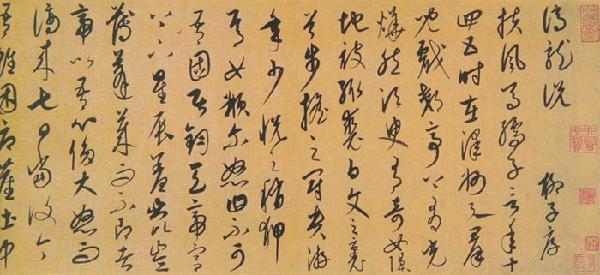 謫龍說 柳子厚
扶風馬孺子言年十
四五時在澤州與群
兒戲郊亭上有光
燁然須臾有奇女墜
地被緅裘白文之裏
首步搖之冠貴游
年少悅之稍狎
焉女頩尔怒曰不可
吾固居鈞天帝宮
下上星辰羞崑崙
薄蓬萊而不即者
帝以吾心侈大怒而
謫來七日當復今
吾雖困辱塵土中